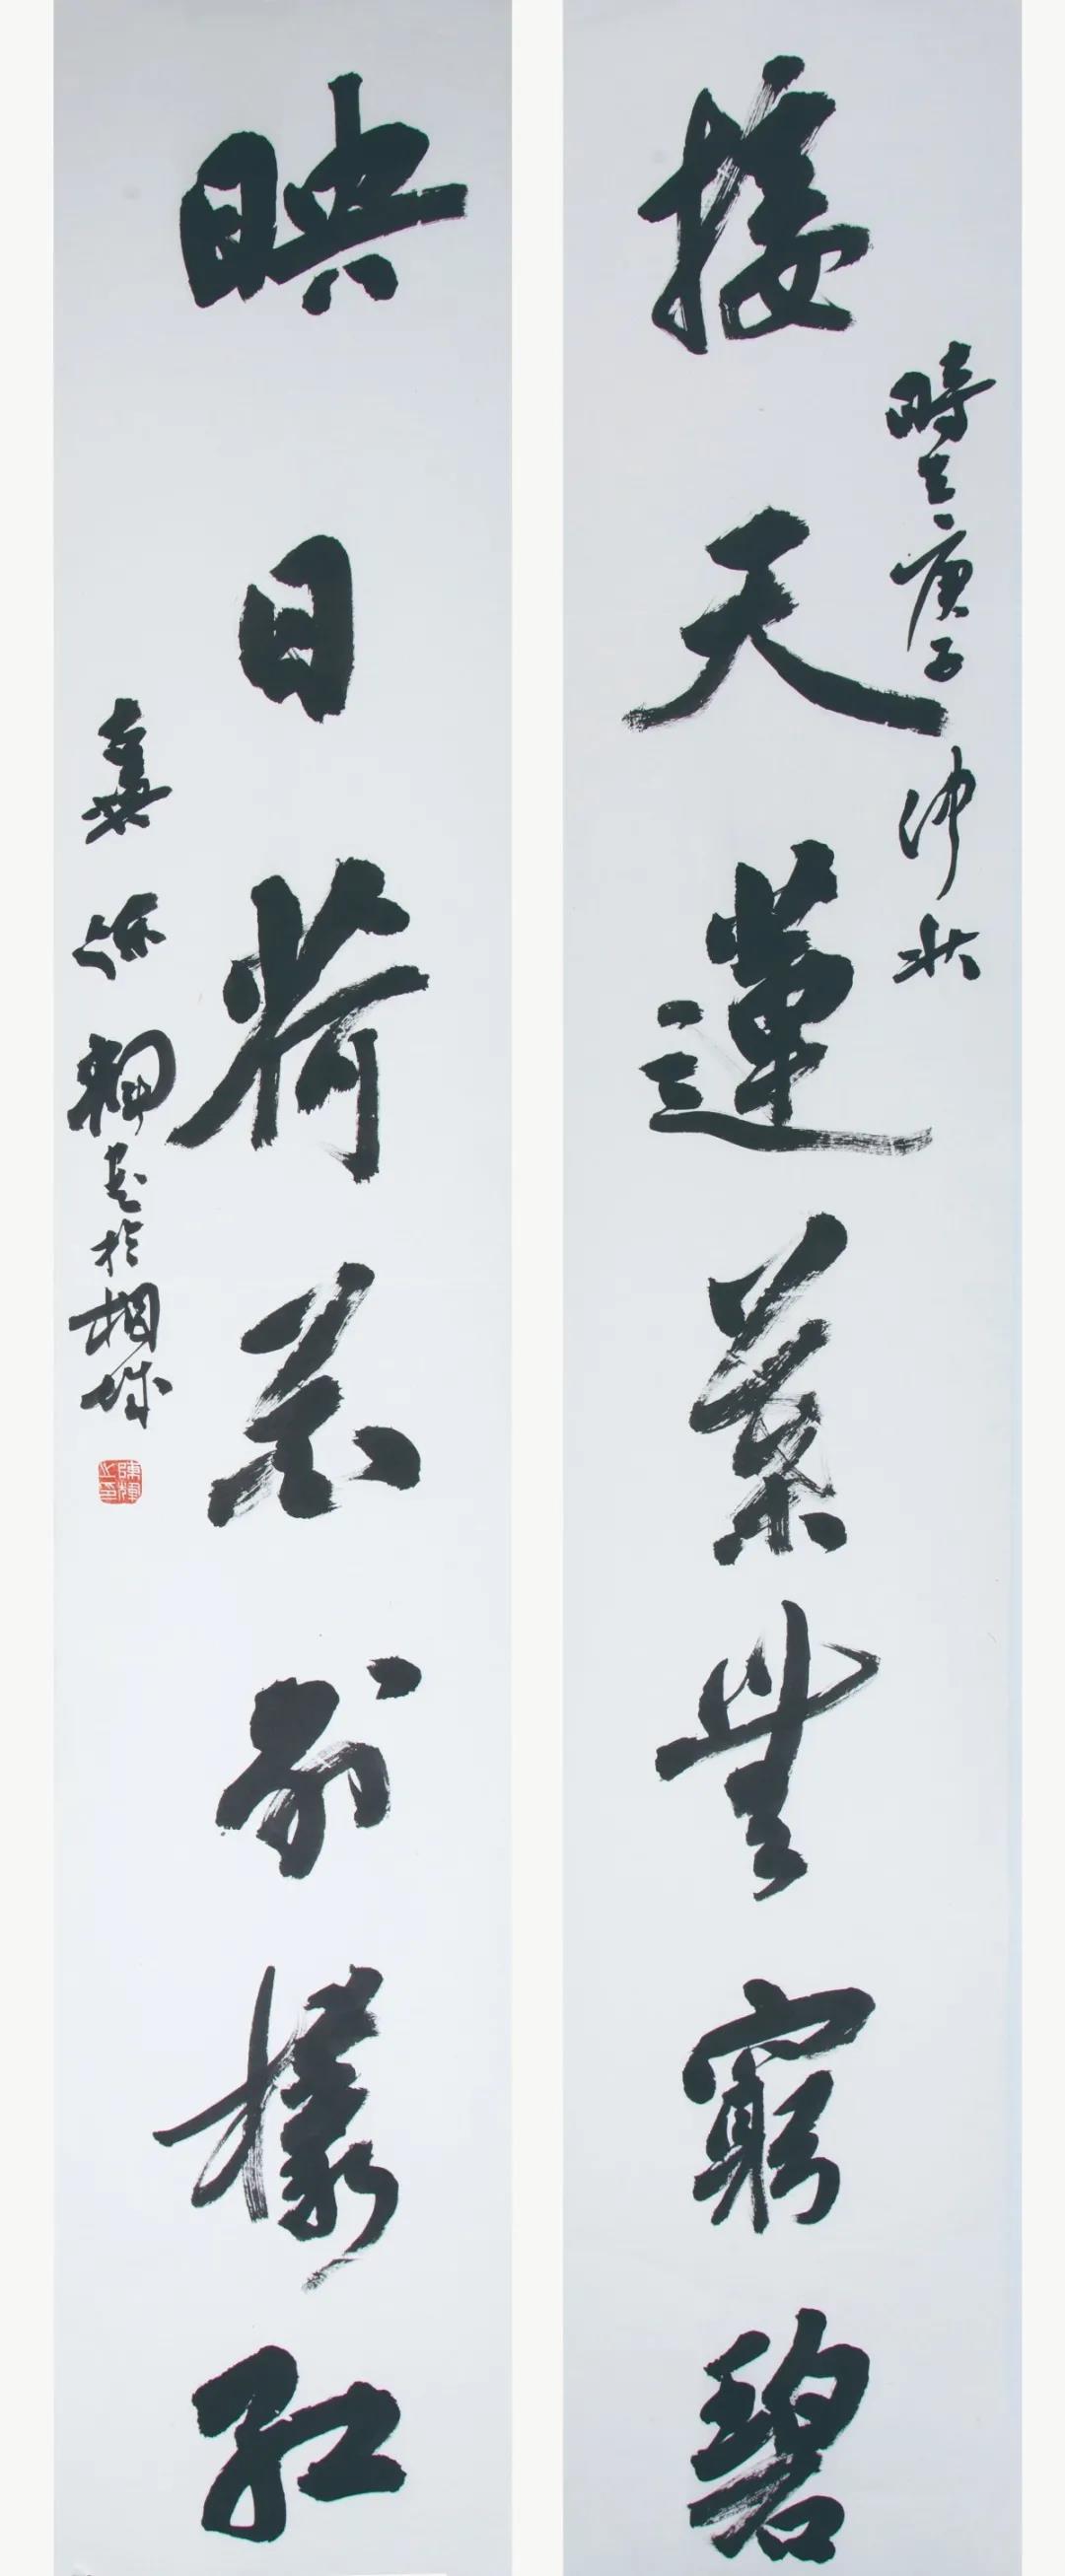 接天蓮葉無窮碧
時在庚子仲秋
映日荷花別樣紅
書於桐城
陳輝之印